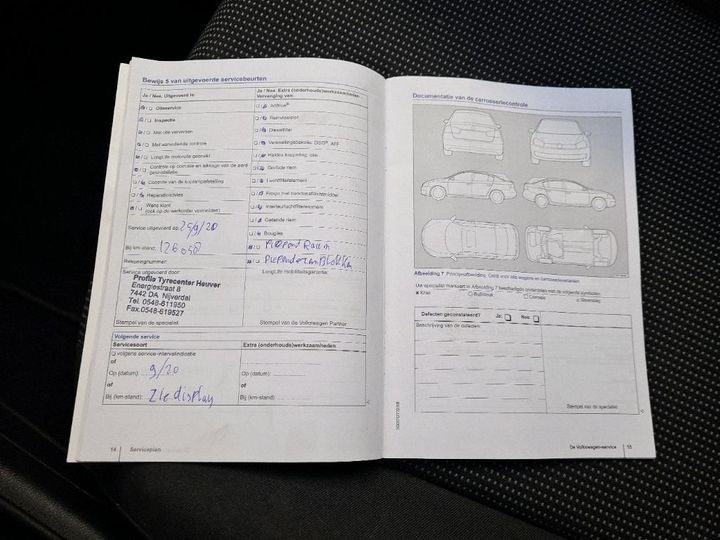 Bewijs 5 van uitgevoerde servicebeurten
Ja / Nee. Uitgevoerd is:
Olieservice
Inspectie
Met olie verversen
Met aanvullende controle
LongLife motorolie gebruikt
Controle op corrosie en lekkage van de aard-
Controle van de koplampafstelling
Reparatieadvies
Wens klant
(ook op de werkorder vermelden)
Service uitgevoerd op: 25/9/20
Bij km-stand: 126.058
Rekeningnummer:
Service uitgevoerd door:
Profile Tyrecenter Heuver
Energiestraat 8
7442 DA Nijverdal
Tel. 0548-611950
Fax.0548-619527
Stempel van de specialist
Ja / Nee. Extra (onderhouds)werkzaamheden
Vervanging van:
Dieselfilter
Getande riem
Luchtfilterelement
Interieurluchtfilterelement
Getande riem
Bougies
LongLife mobiliteitsgarantie:
Stempel van de Volkswagen Partner
Volgende service
Servicesoort
Extra (onderhouds)werkzaamheden
volgens service-intervalindicatie
of
Op (datum): 9/20
Op (datum):
of
of
Bij (km-stand): Zie display
Bij (km-stand):
14 Serviceplan
Documentatie van de carrosseriecontrole
Afbeelding 7 Principeafbeelding: Geldt voor alle wagens en carrosserievarianten
Uw specialist markeert in Afbeelding 7 beschadigde onderdelen met de volgende symbolen:
Defecten geconstateerd? Ja: Nee:
Beschrijving van de defecten:
Stempel van de specialist
De Volkswagen-service 15